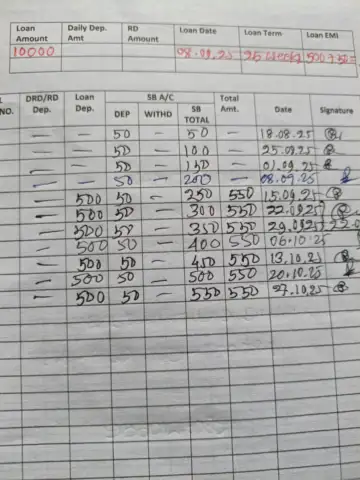 Loan Amount Daily Dep. Amt RD Amount Loan Date Loan Term Loan EMI
10000 08.09.25 25 weeks 500+50=
NO. DRD/RD Dep. Loan Dep. SB A/C Total Amt. Date Signature
DEP WITHD SB TOTAL
— — 50 — 50 — 18.08.25
— — 50 — 100 — 25.08.25
— — 50 — 150 — 01.09.25
— — 50 — 200 — 08.09.25
— 500 50 — 250 550 15.09.25
— 500 50 — 300 550 22.09.25
— 500 50 — 350 550 29.09.25
— 500 50 — 400 550 06.10.25
— 500 50 — 450 550 13.10.25
— 500 50 — 500 550 20.10.25
— 500 50 — 550 550 27.10.25